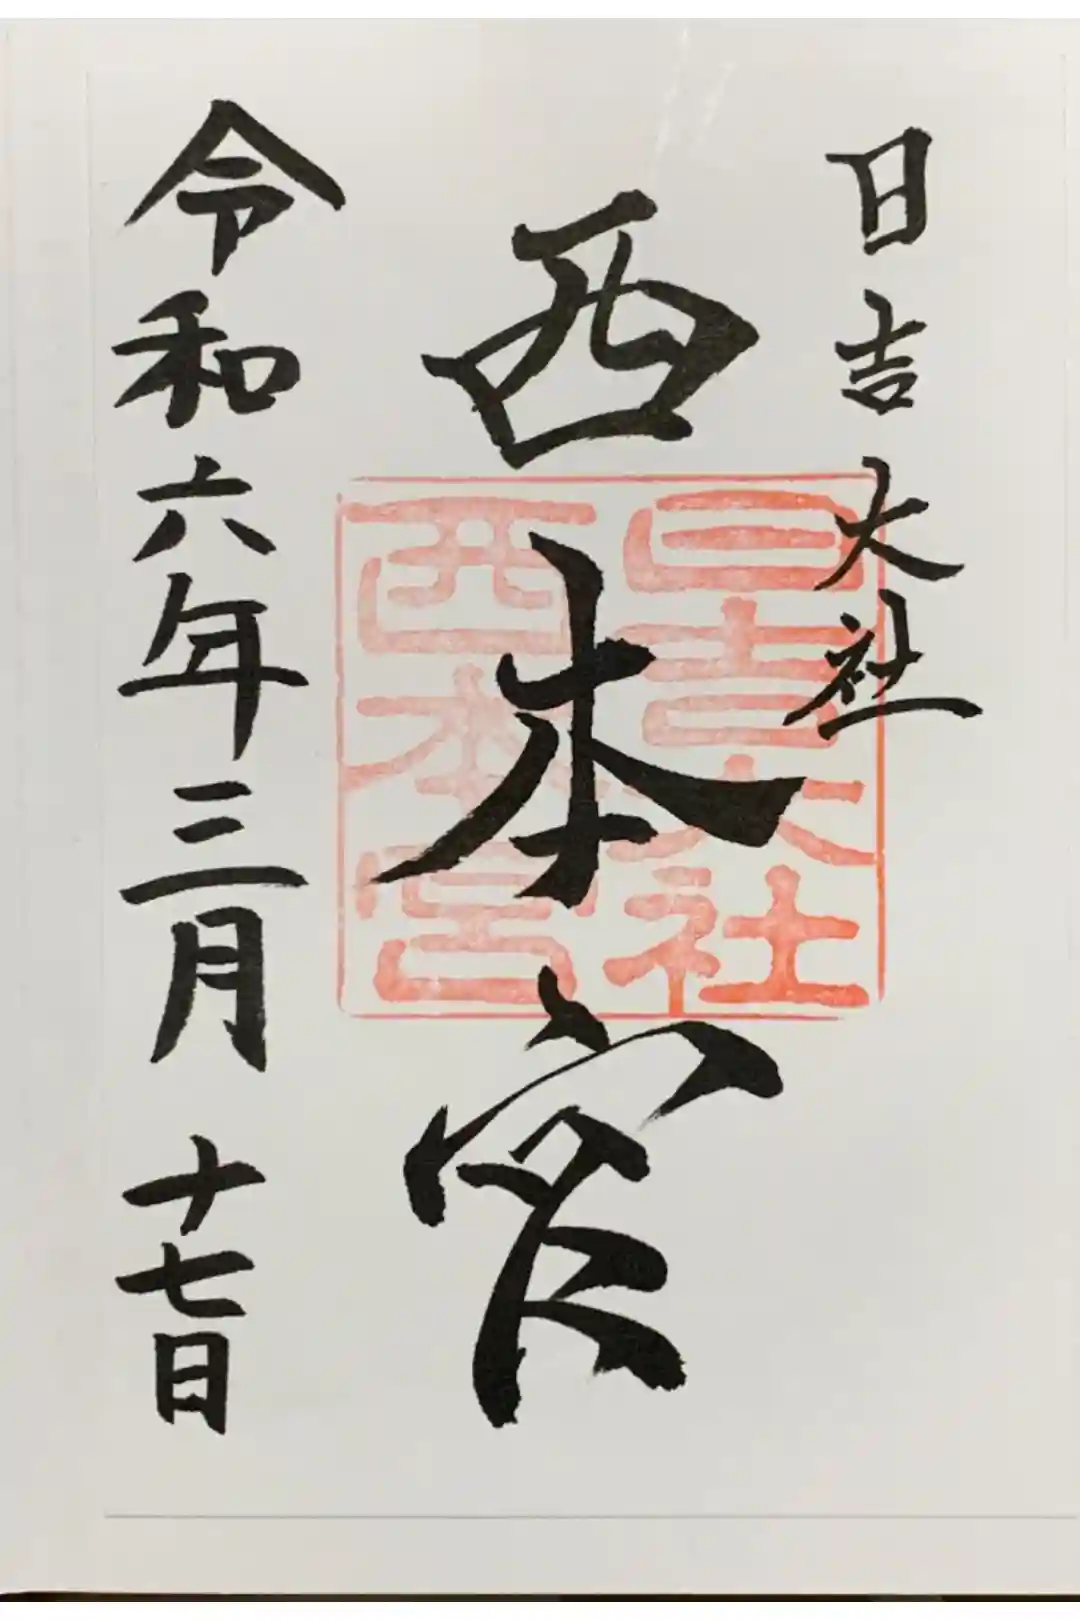 日吉大社
西本宮
日吉大社
西本宮
令和六年三月十七日